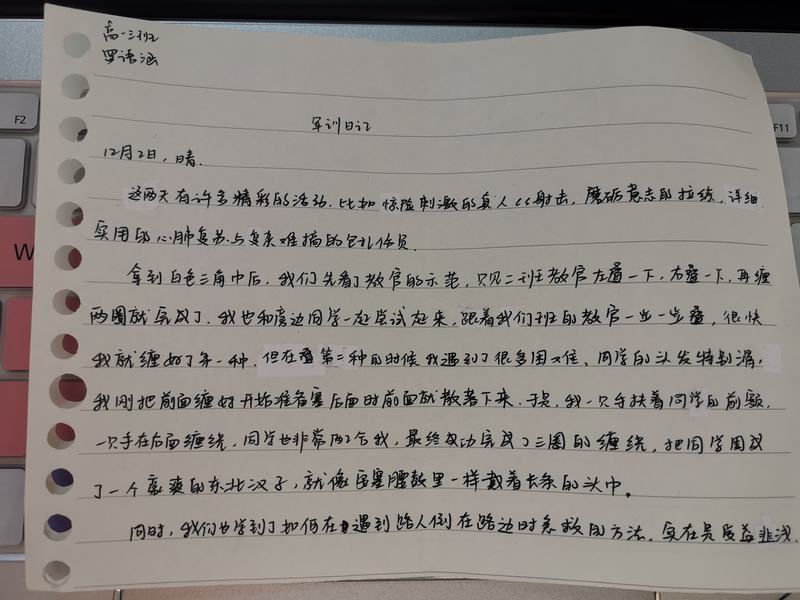 高一三班
罗语涵
军训日记
12月2日，晴.
这两天有许多精彩的活动.比如惊险刺激的真人cs射击，磨砺意志的拉练，详细
实用的心肺复苏与复杂难搞的包扎任务.
拿到白色三角巾后，我们先看了教官的示范，只见二班教官左叠一下，右叠一下，再缠
两圈就完成了.我也和旁边同学一起尝试起来，跟着我们班的教官一步一步叠，很快
我就缠好了第一种.但在叠第二种的时候我遇到了很多困难，同学的头发特别滑，
我刚把前面缠好开始准备塞后面时前面就散落下来.于是，我一只手扶着同学的前额，
一只手在后面缠绕，同学也非常配合我，最终成功完成了三圈的缠绕，把同学围成
了一个豪爽的东北汉子，就像安塞腰鼓里一样戴着长条的头巾。
同时，我们也学到了如何在遇到路人倒在路边时急救的方法，实在是受益匪浅.
F2
F11
W